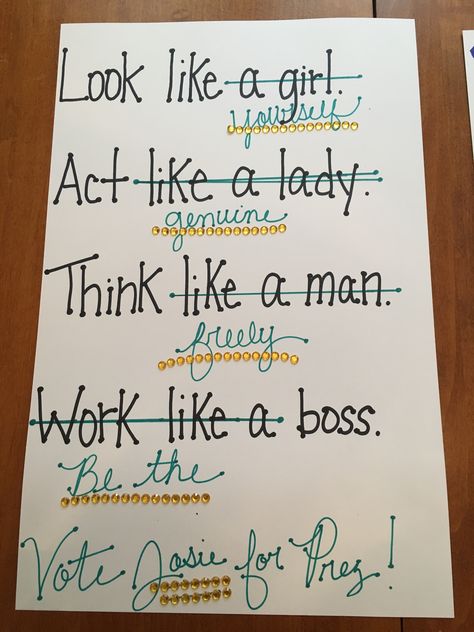 Look like a girl.
yourself
Act like a lady.
genuine
Think like a man.
freely
Work like a boss.
Be the
Vote Josie for Prez!